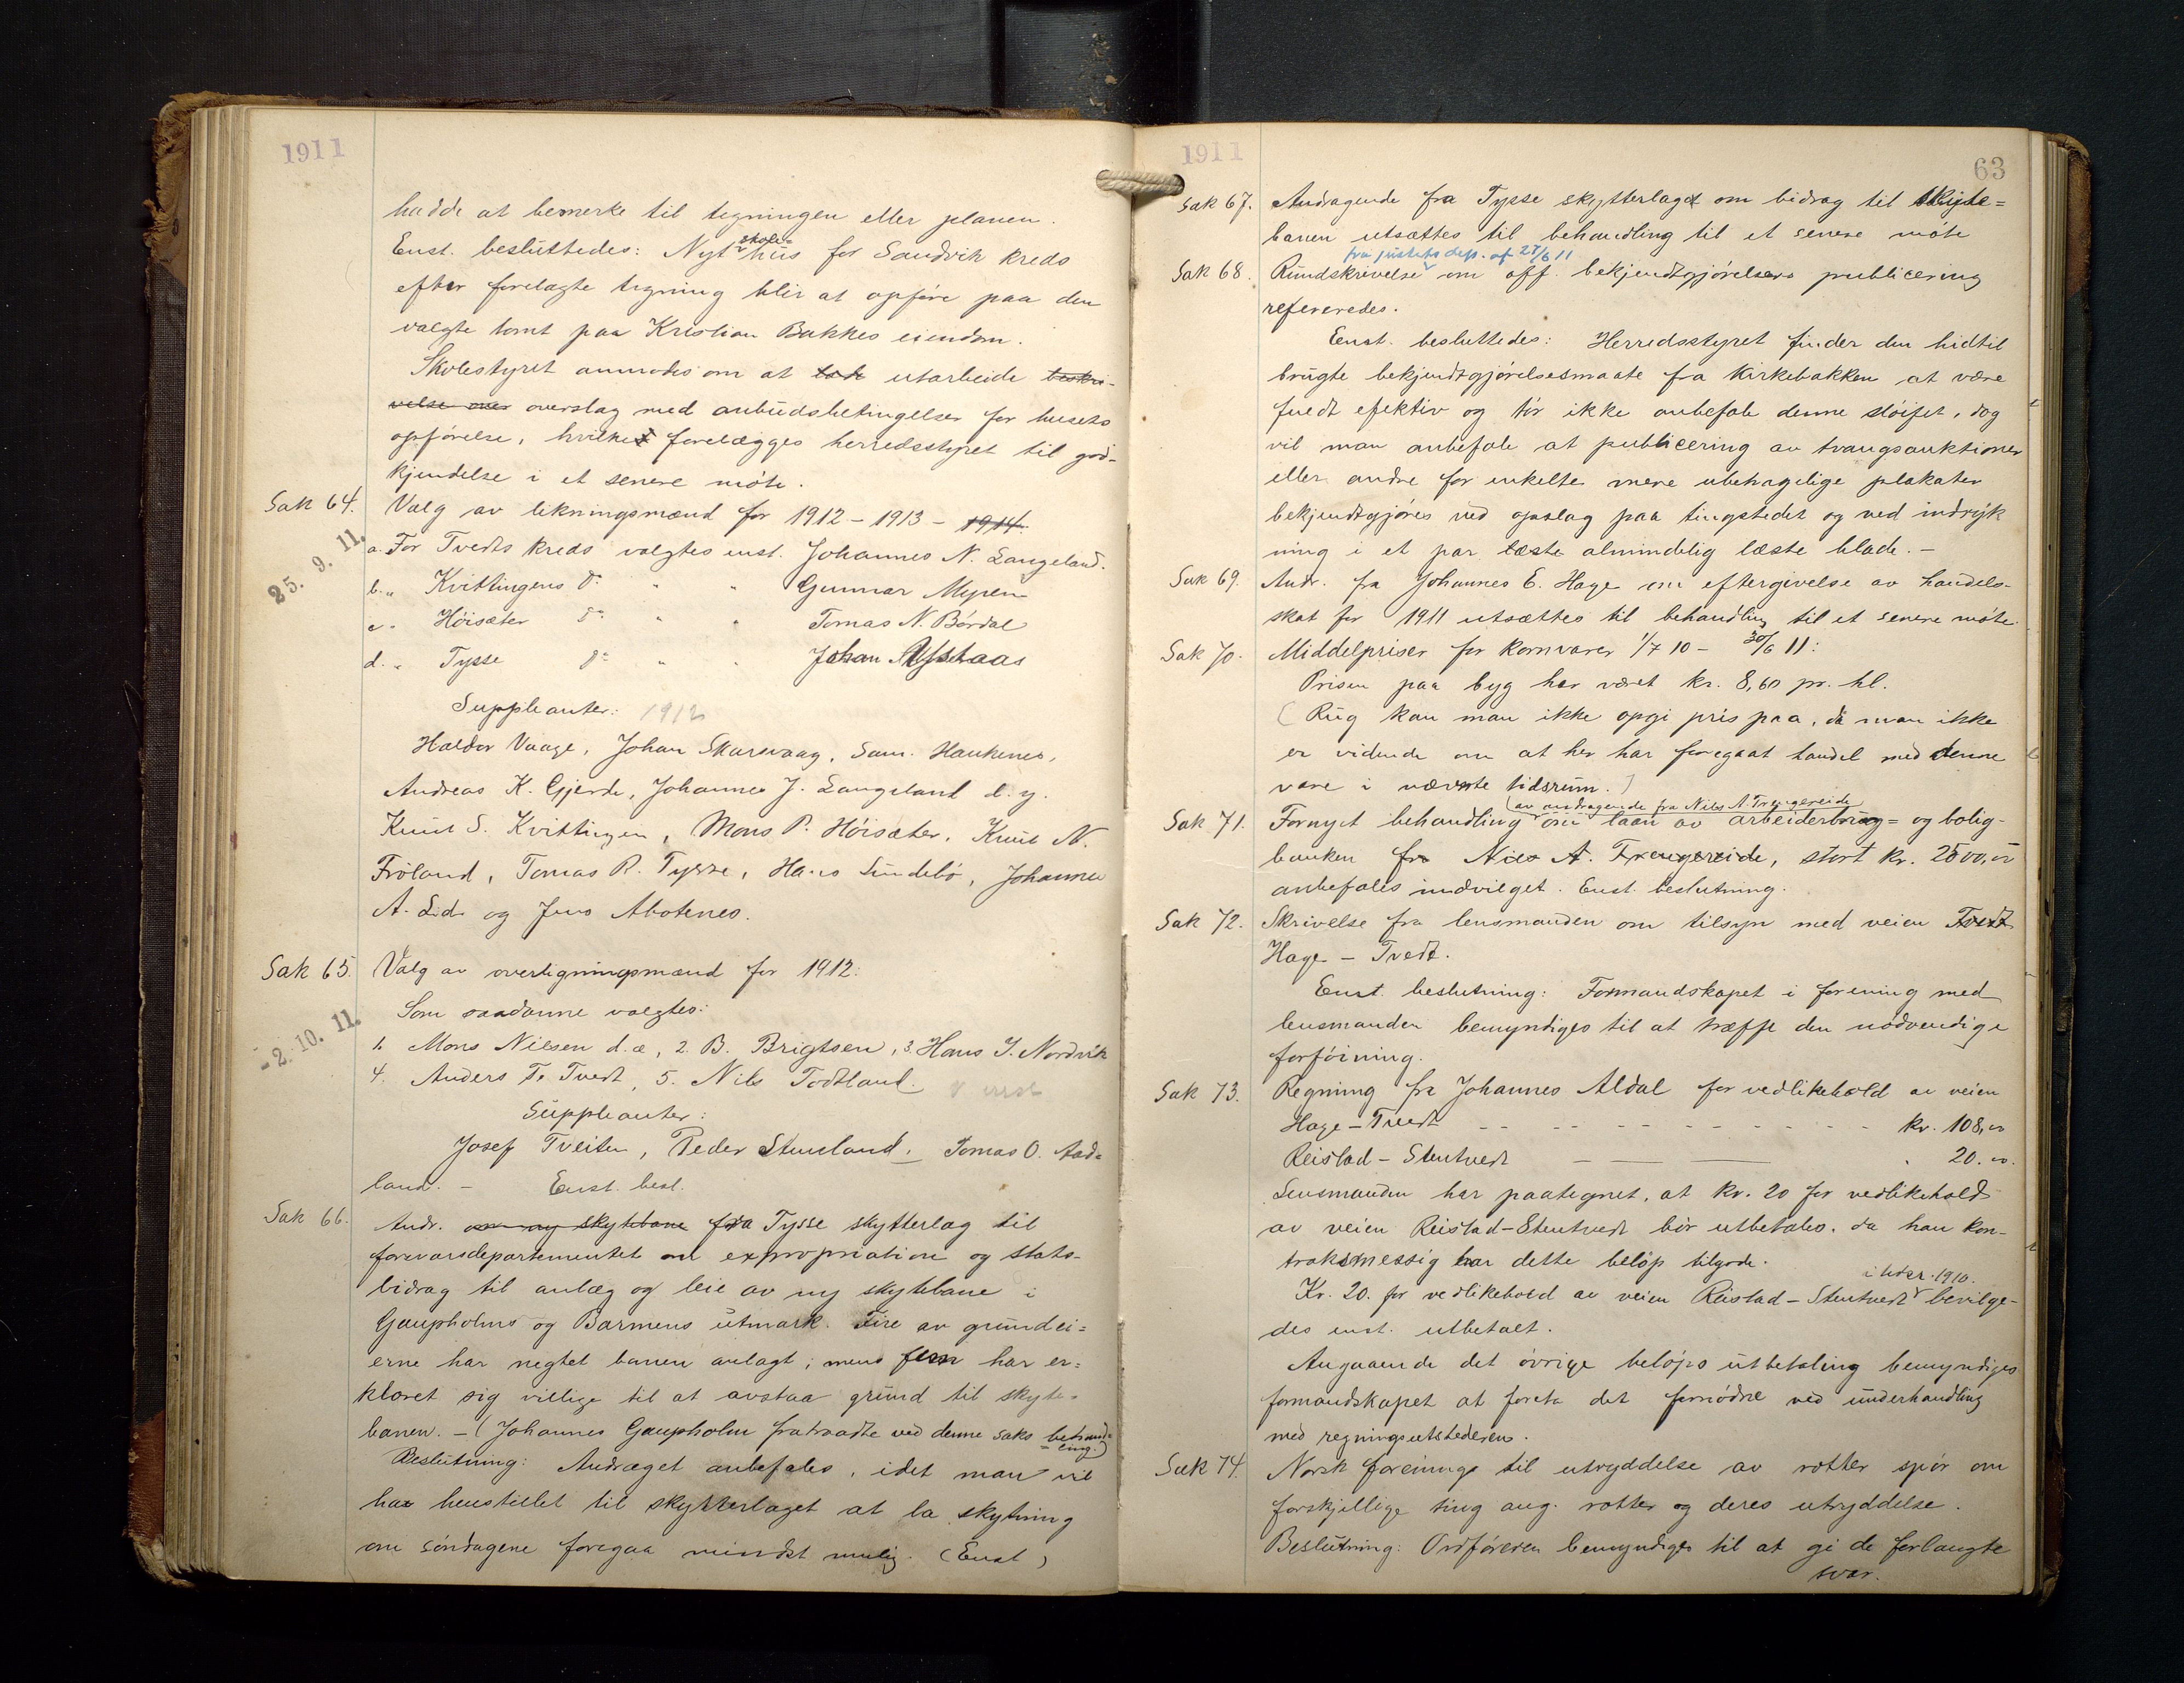 1911
hadde at bemerke til tegningen eller planen.
Enst. besluttedes: Nyt skole=hus for Sandvik kreds
efter forelagte tegning blir at opføre paa den
valgte tomt paa Kristian Bakkes eiendom.
Skolestyret anmodes om at lade utarbeide beskri-
velse over overslag med anbudsbetingelser for husets
opførelse, hvilket forelægges herredsstyret til god-
kjendelse i et senere møte.
Sak 64. Valg av likningsmænd for 1912 - 1913 - 1914.
25. 9. 11.
a. For Tvedts kreds valgtes enst. Johannes N. Langeland.
b. " Kvittingens do " " Gunnar Myren
c. " Høisæter do " " Tomas N. Børdal
d. " Tysse do " " Johan Ystaas
Suppleanter: 1912
Haldor Vaage, Johan Skarsvaag, Sam. Haukenes,
Andreas K. Gjerde, Johannes J. Langeland d.y.
Knut S. Kvittingen, Mons P. Høisæter, Knut N.
Frøland, Tomas R. Tysse, Hans Lindebø, Johannes
A. Lid og Jens Abotenes.
Sak 65. Valg av overligningsmænd for 1912:
Som saadanne valgtes:
-2. 10. 11.
1. Mons Nilsen d.æ, 2. B. Brigtsen, 3. Hans J. Nordvik
4. Anders T. Tvedt, 5. Nils Todtland.
Suppleanter:
Josef Tveiten, Peder Stensland, Tomas O. Aad=
land. - Enst. besl.
Sak 66. Andr. om ny skytebane fra Tysse skytterlag til
forsvarsdepartementet om expropriation og stats-
bidrag til anlæg og leie av ny skytebane i
Gaupholms og Barmens utmark. Fire av grundei=
erne har negtet banen anlagt; mens fem har er=
klæret sig villige til at avstaa grund til skyte=
banen. - (Johannes Gaupholm fratraadte ved denne saks behand=
=ling.)
Beslutning: Andraget anbefales, idet man vil
ha henstillet til skytterlaget at la skytning
om søndagene foregaa mindst mulig. (Enst)
1911
63
Sak 67. Andragende fra Tysse skytterlag om bidrag til skyte=
banen utsættes til behandling til et senere møte
fra justits dep. af 27/6 11
Sak 68. Rundskrivelse om off. bekjendtgjørelsers publicering
refereredes.
Enst. besluttedes: Herredsstyret finder den hidtil
brugte bekjendtgjørelsesmaate fra kirkebakken at være
fuldt efektiv og tør ikke anbefale denne sløifet, dog
vil man anbefale at publicering av tvangsauktioner
eller andre for enkelte mere ubehagelige plakater
bekjendtgjøres ved opslag paa tingstedet og ved indryk
ning i et par læste almindelig læste blade. -
Sak 69. Andr. fra Johannes E. Hage om eftergivelse av handels-
skat for 1911 utsættes til behandling til et senere møte.
Sak 70. Middelpriser for kornvarer 1/7 10 - 30/6 11:
Prisen paa byg har været kr. 8,60 pr. hl.
(Rug kan man ikke opgi pris paa, da man ikke
er vidende om at her har foregaat handel med denne
vare i nævnte tidsrum.)
(av andragende fra Nils A. Trengereide
Sak 71. Fornyet behandling om laan av arbeiderbrug= og bolig-
banken fra Nils A. Trengereide, stort kr. 2500,00
anbefales indvilget. Enst. beslutning.
Sak 72. Skrivelse fra lensmanden om tilsyn med veien Tvedt
Hage - Tvedt.
Enst. beslutning: Formandskapet i forening med
lensmanden bemyndiges til at træffe den nødvendige
forføining.
Sak 73. Regning fra Johannes Aldal for vedlikehold av veien
Hage - Tvedt - - - - - - - - kr. 108,00
Reistad - Stentvedt — — — " 20.00.
Lensmanden har paategnet, at kr. 20 for vedlikehold
av veien Reistad-Stentvedt bør utbetales, da han kon-
traktmessig har dette beløp tilgode.
i tidsr. 1910.
Kr. 20. for vedlikehold av veien Reistad - Stentvedt bevilge-
des enst. utbetalt.
Angaaende det øvrige beløps utbetaling bemyndiges
formandskapet at foreta det fornødne ved underhandling
med regningsutstederen.
Sak 74. Norsk forenings til utryddelse av rotter spør om
forskjellige ting ang. rotter og deres utryddelse.
Beslutning: Ordføreren bemyndiges til at gi de forlangte
svar.